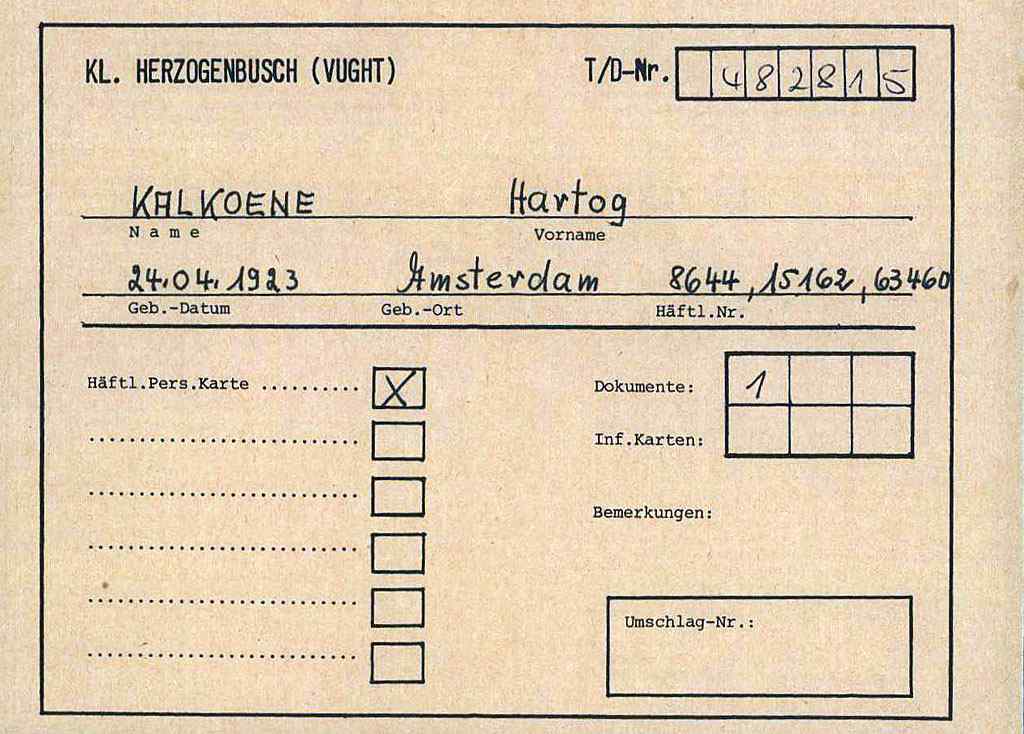 KL. HERZOGENBUSCH (VUGHT) T/D-Nr. 482815
KALKOENE Hartog
Name Vorname
24.04.1923 Amsterdam 8644, 15162, 63460
Geb.-Datum Geb.-Ort Häftl.Nr.
Häftl.Pers.Karte .......... X Dokumente: 1
Inf.Karten:
Bemerkungen:
Umschlag-Nr.: